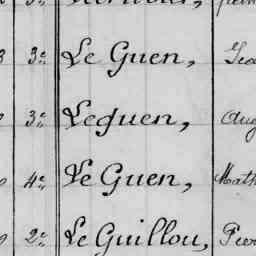 3e Le Guen,
3e Leguen, Aug
4e Le Guen, Math
2e Le Guillou, Pier